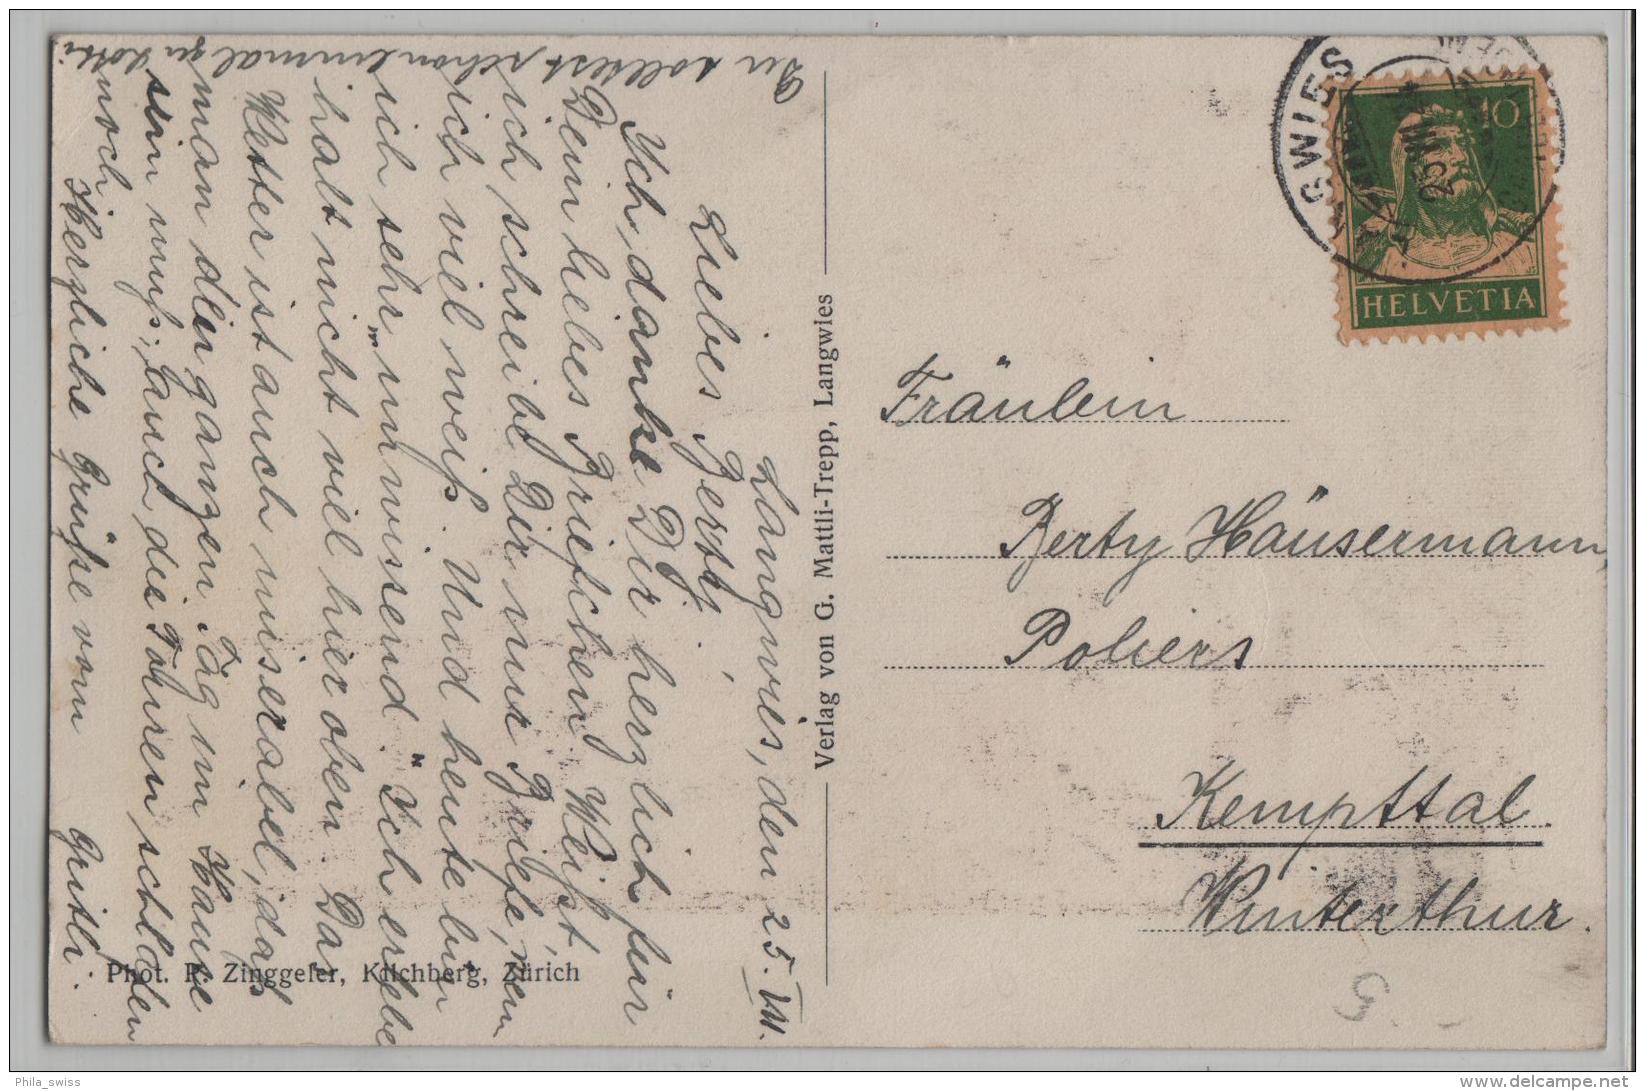 Langwies, den 25. VIII.
Liebes Berty,
Ich danke Dir herzlich für
Dein liebes Briefchen. Weißt,
ich schreibe Dir nur Briefe, wenn
ich viel weiß. Und heute bin
ich sehr „unwissend“. Ich erlebe
halt nicht viel hier oben. Das
Wetter ist auch miserabel, daß
man den ganzen Tag im Hause
sein muß; auch die Fahren schilden
noch.
Herzliche Grüße vom Gritli.
Du solltest schon einmal zu Lotti
Verlag von G. Mattli-Trepp, Langwies
Phot. R. Zinggeler, Kilchberg, Zürich
LANGWIES
10
HELVETIA
Fräulein
Berty Häusermann
Poliers
Kempttal
Winterthur.
Phila_swiss
www.delcampe.net